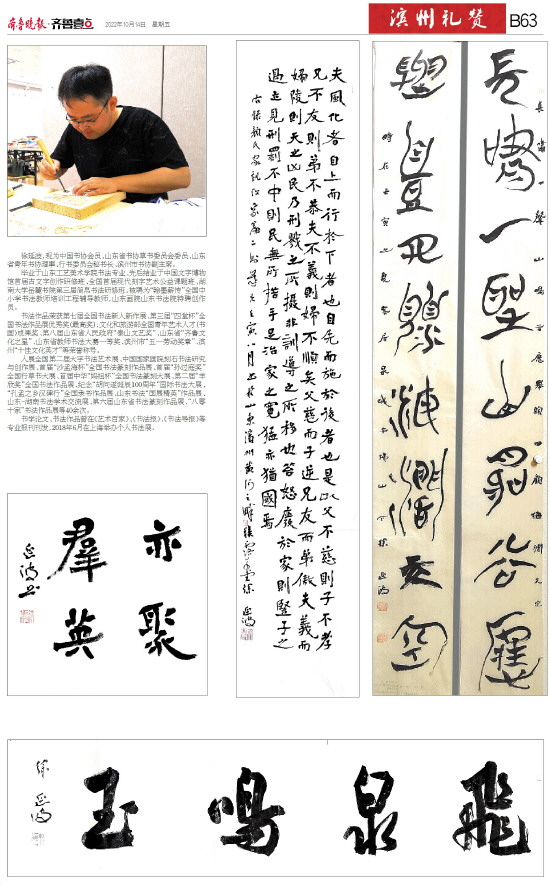 齐鲁晚报·齐鲁壹点
2022年10月14日 星期五
滨州礼赞
B63
徐延波，现为中国书协会员，山东省书协草书委员会委员，山东
省青年书协理事、行书委员会秘书长，滨州市书协副主席。
毕业于山东工艺美术学院书法专业，先后结业于中国文字博物
馆首届古文字创作研修班、全国首届现代刻字艺术公益课题班、湖
南大学岳麓书院第三届简帛书法研修班。被聘为“翰墨薪传”全国中
小学书法教师培训工程辅导教师、山东画院山东书法院特聘创作
员。
书法作品荣获第七届全国书法新人新作展、第三届“四堂杯”全
国书法作品展优秀奖(最高奖)；文化和旅游部全国青年艺术人才(书
画)成果奖、第八届山东省人民政府“泰山文艺奖”、山东省“齐鲁文
化之星”、山东省教师书法大赛一等奖、滨州市“五一劳动奖章”、滨
州“十佳文化英才”等荣誉称号。
入展全国第二届大字书法艺术展、中国国家画院刻石书法研究
与创作展、首届“沙孟海杯”全国书法篆刻作品展、首届“孙过庭奖”
全国行草书大展、首届中华“妈祖杯”全国书法篆刻大展、第二届“羊
欣奖”全国书法作品展、纪念“胡问遂诞辰100周年”国际书法大展、
“孔孟之乡汉碑行”全国隶书作品展、山东书法“国展精英”作品展、
山东-湖南书法学术交流展、第六届山东省书法篆刻作品展、“八零
十家”书法作品展等40余次。
书学论文、书法作品曾在《艺术百家》、《书法报》、《书法导报》等
专业报刊刊发，2018年6月在上海举办个人书法展。
夫风化者自上而行於下者也自先而施於後者也是以父不慈则子不孝
兄不友则弟不恭夫不義则婦不順矣父慈而子逆兄友而弟傲夫義而
婦陵则天之凶民乃刑戮之所攝非訓導之所移也笞怒廢於家则豎子之
過立見刑罰不中则民無所措手足治家之寬猛亦猶國焉
長嘯一聲山鳴谷應
舉頭四顧海闊天空
亦聚
羣英
延波書
飛泉鳴玉
徐延波